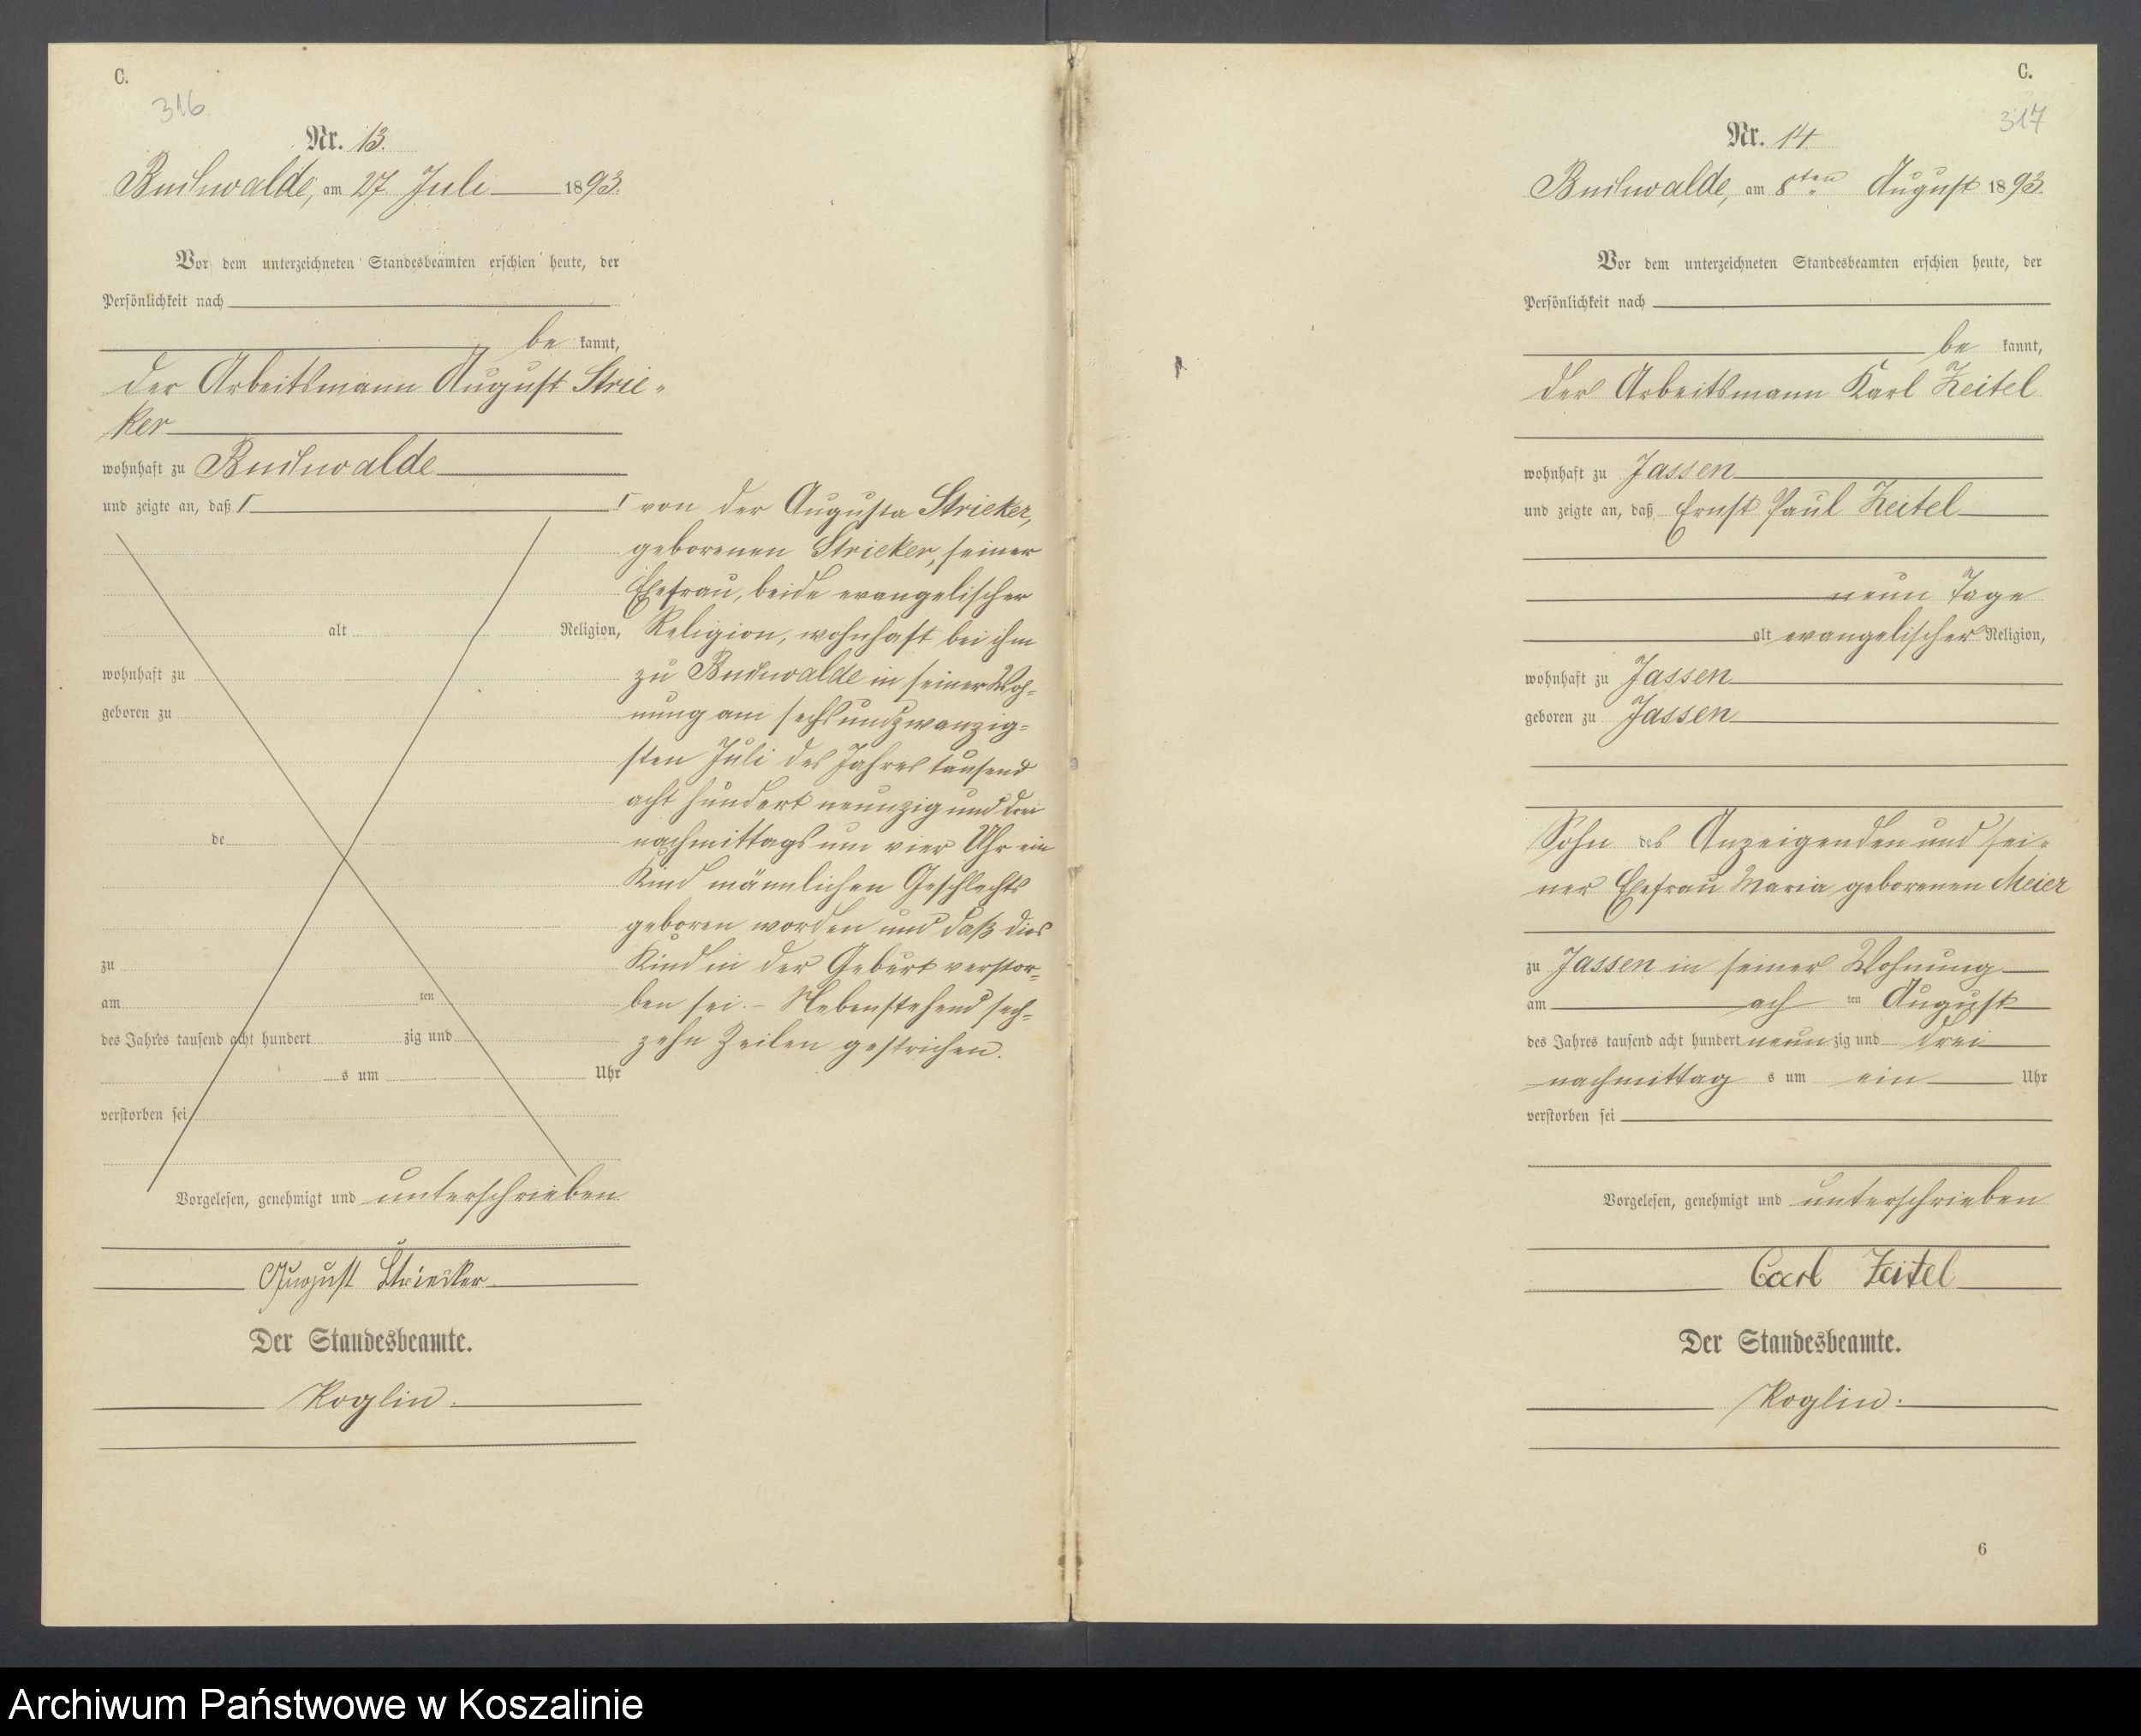 C.
316.
Nr. 13.
Buchwalde, am 27 Juli 1893.
Vor dem unterzeichneten Standesbeamten erschien heute, der
Persönlichkeit nach
be kannt,
der Arbeitsmann August Strie-
ker
wohnhaft zu Buchwalde
und zeigte an, daß Γ
Γ von der Augusta Strieker,
geborenen Strieker, seiner
Ehefrau, beide evangelischer
Religion, wohnhaft bei ihm
zu Buchwalde in seiner Woh-
nung am sechsundzwanzig-
sten Juli des Jahres tausend
acht hundert neunzig und drei
nachmittags um vier Uhr ein
Kind männlichen Geschlechts
geboren worden und daß dies
Kind in der Geburt verstor-
ben sei. - Nebenstehend sech-
zehn Zeilen gestrichen.
alt Religion,
wohnhaft zu
geboren zu
de
zu
am ten
des Jahres tausend acht hundert zig und
s um Uhr
verstorben sei
Vorgelesen, genehmigt und unterschrieben
August Striecker
Der Standesbeamte.
Koglin.
C.
317
Nr. 14
Buchwalde, am 8ten August 1893.
Vor dem unterzeichneten Standesbeamten erschien heute, der
Persönlichkeit nach
be kannt,
der Arbeitsmann Karl Zeitel
wohnhaft zu Jassen
und zeigte an, daß Ernst Paul Zeitel
neun Tage
alt evangelischer Religion,
wohnhaft zu Jassen
geboren zu Jassen
Sohn des Anzeigenden und sei-
ner Ehefrau Maria geborenen Meier
zu Jassen in seiner Wohnung
am ach ten August
des Jahres tausend acht hundert neun zig und drei
nachmittag s um ein Uhr
verstorben sei
Vorgelesen, genehmigt und unterschrieben
Carl Zeitel
Der Standesbeamte.
Koglin.
6
Archiwum Państwowe w Koszalinie